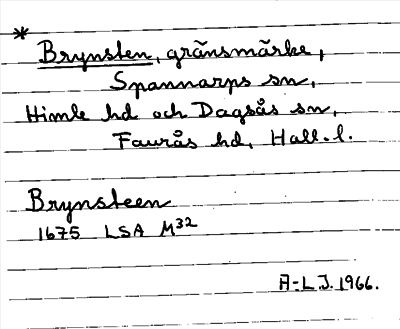 *
Brynsten, gränsmärke,
Spannarps sn,
Himle hd och Dagsås sn,
Faurås hd, Hall. l.
Brynsteen
1675 LSA M32
A-L J. 1966.